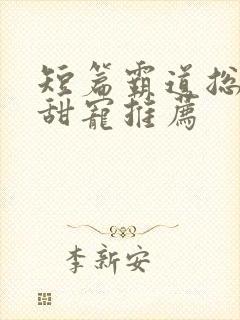 短篇霸道总
甜宠推薦
李新安